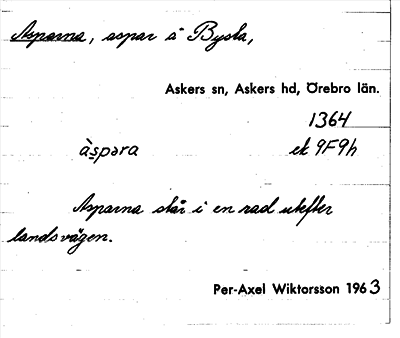 Asparna, aspar å Bysta,
Askers sn, Askers hd, Örebro län.
1364
àspəra ek 9F9h
Asparna står i en rad utefter
landsvägen.
Per-Axel Wiktorsson 1963